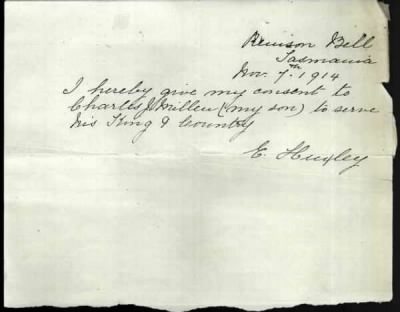 Renison Bell
Tasmania
Nov. 7th. 1914
I hereby give my consent to
Charles J Millen (my son) to serve
his King & Country
E. Huxley